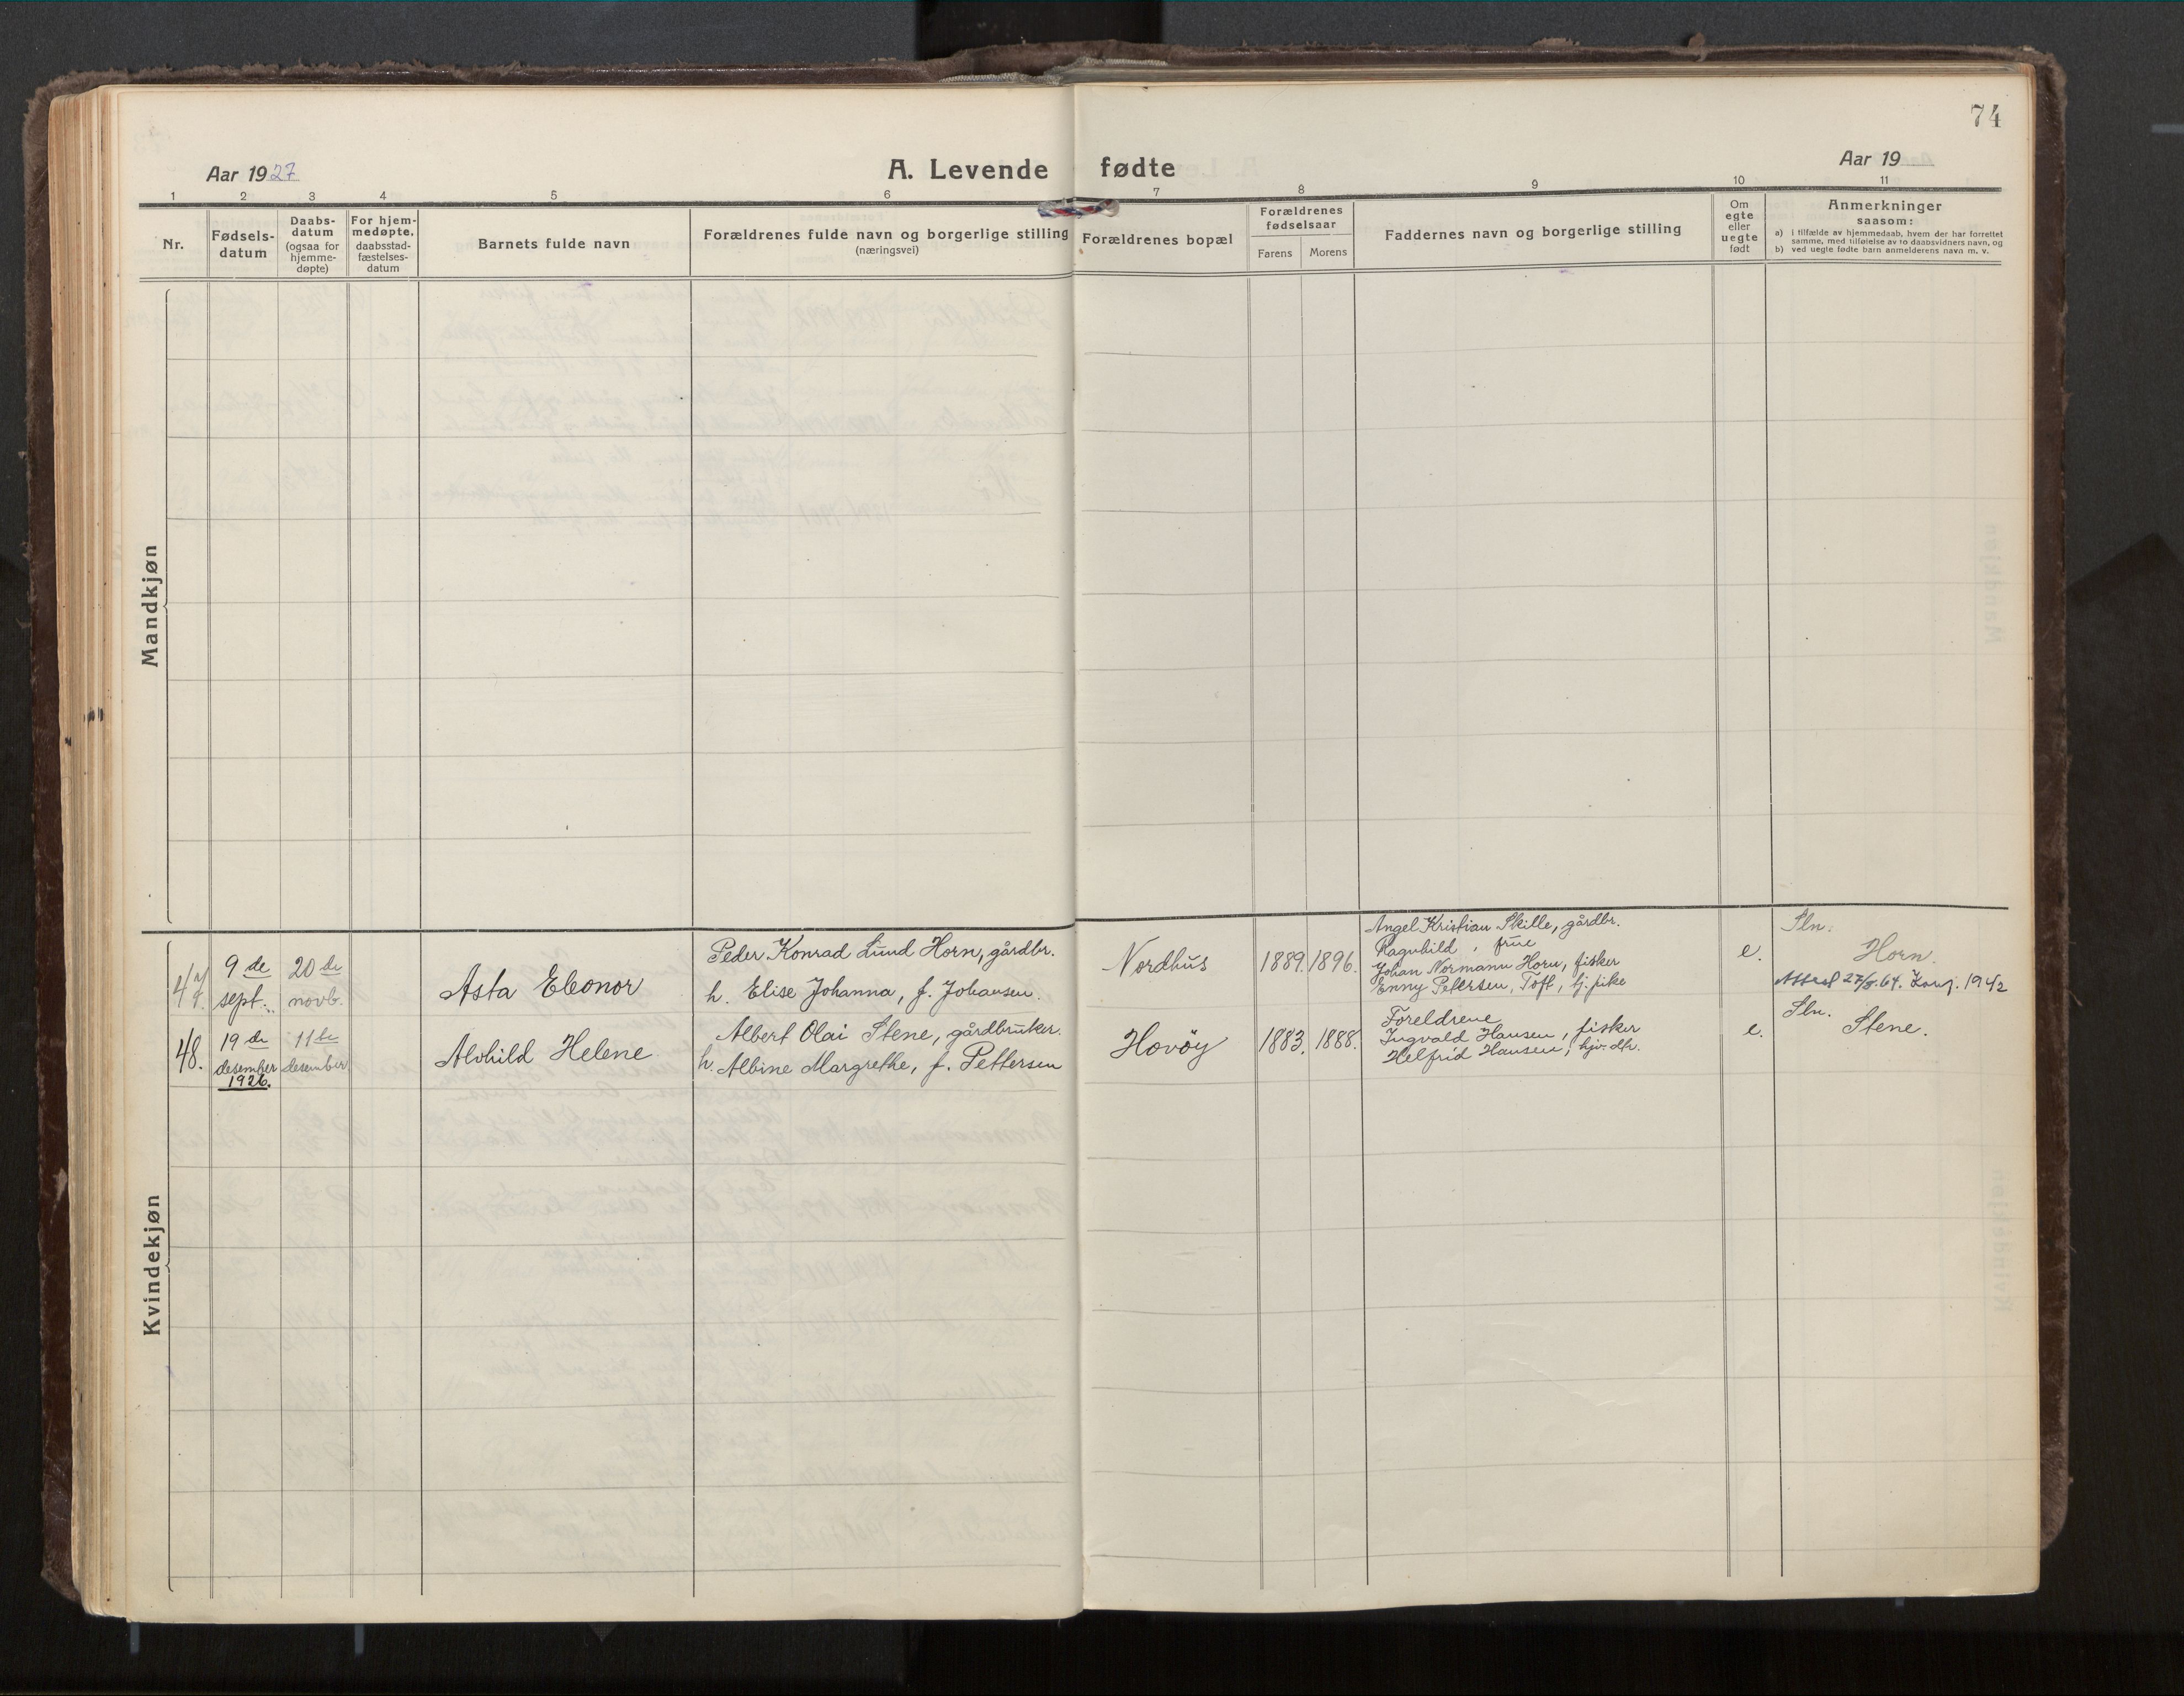 74
Aar 1927
A. Levende fødte
Aar 19
1 2 3 4 5 6 7 8 9 10 11
Nr.
Fødsels-
datum
Daabs-
datum
(ogsaa for
hjemme-
døpte)
For hjem-
medøpte,
daabsstad-
fæstelses-
datum
Barnets fulde navn
Forældrenes fulde navn og borgerlige stilling
(næringsvei)
Forældrenes bopæl
Forældrenes
fødselsaar
Farens Morens
Faddernes navn og borgerlige stilling
Om
egte
eller
uegte
født
Anmerkninger
saasom:
a) i tilfælde av hjemmedaab, hvem der har forrettet
samme, med tilføielse av to daabsvidners navn, og
b) ved uegte fødte barn anmelderens navn m. v.
Mandkjøn
Kvindekjøn
47
9 de
sept.
20 de
novb.
Asta Eleonor
Peder Konrad Lund Horn, gårdbr.
h. Elise Johanna, f. Johansen.
Nordhus
1889. 1896.
Angel Kristian Skille, gårdbr.
Ragnhild, frue
Johan Normann Horn, fisker
Enny Petersen, Toft, tj. pike
e.
Sln.
Horn.
Attest 27/8.64. 1942
48.
19 de
desember
1926.
11 te
desember
Alvhild Helene
Albert Olai Stene, gårdbruker.
h. Albine Margrethe, f. Pettersen
Hovöy
1883. 1888.
Foreldrene
Ingvald Hansen, fisker
Helfrid Hansen, hjv. dtr.
e.
Sln.
Stene.